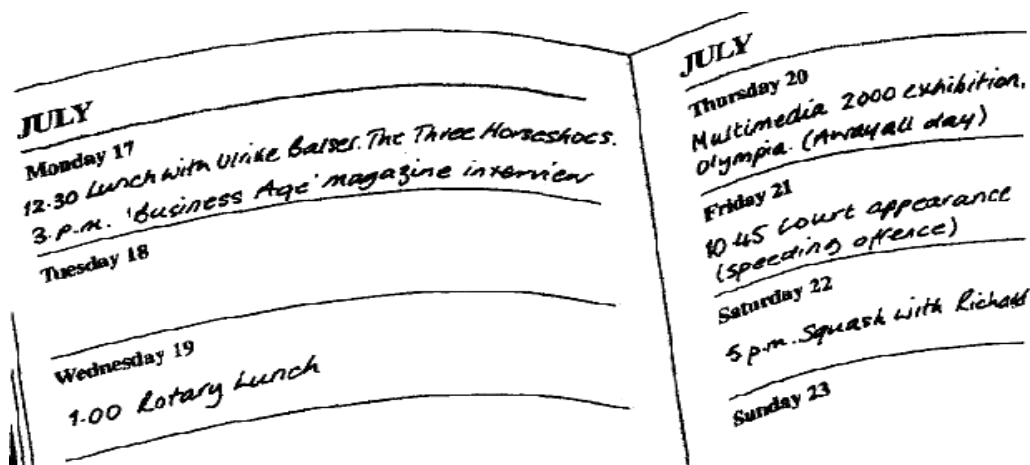 JULY
Monday 17
12.30 Lunch with Ulrike Balser. The Three Horseshoes.
3.p.m. 'Business Age' magazine interview
Tuesday 18
Wednesday 19
1.00 Rotary Lunch
JULY
Thursday 20
Multimedia 2000 exhibition,
Olympia. (Away all day)
Friday 21
10.45 Court appearance
(speeding offence)
Saturday 22
5 p.m. Squash with Richard
Sunday 23